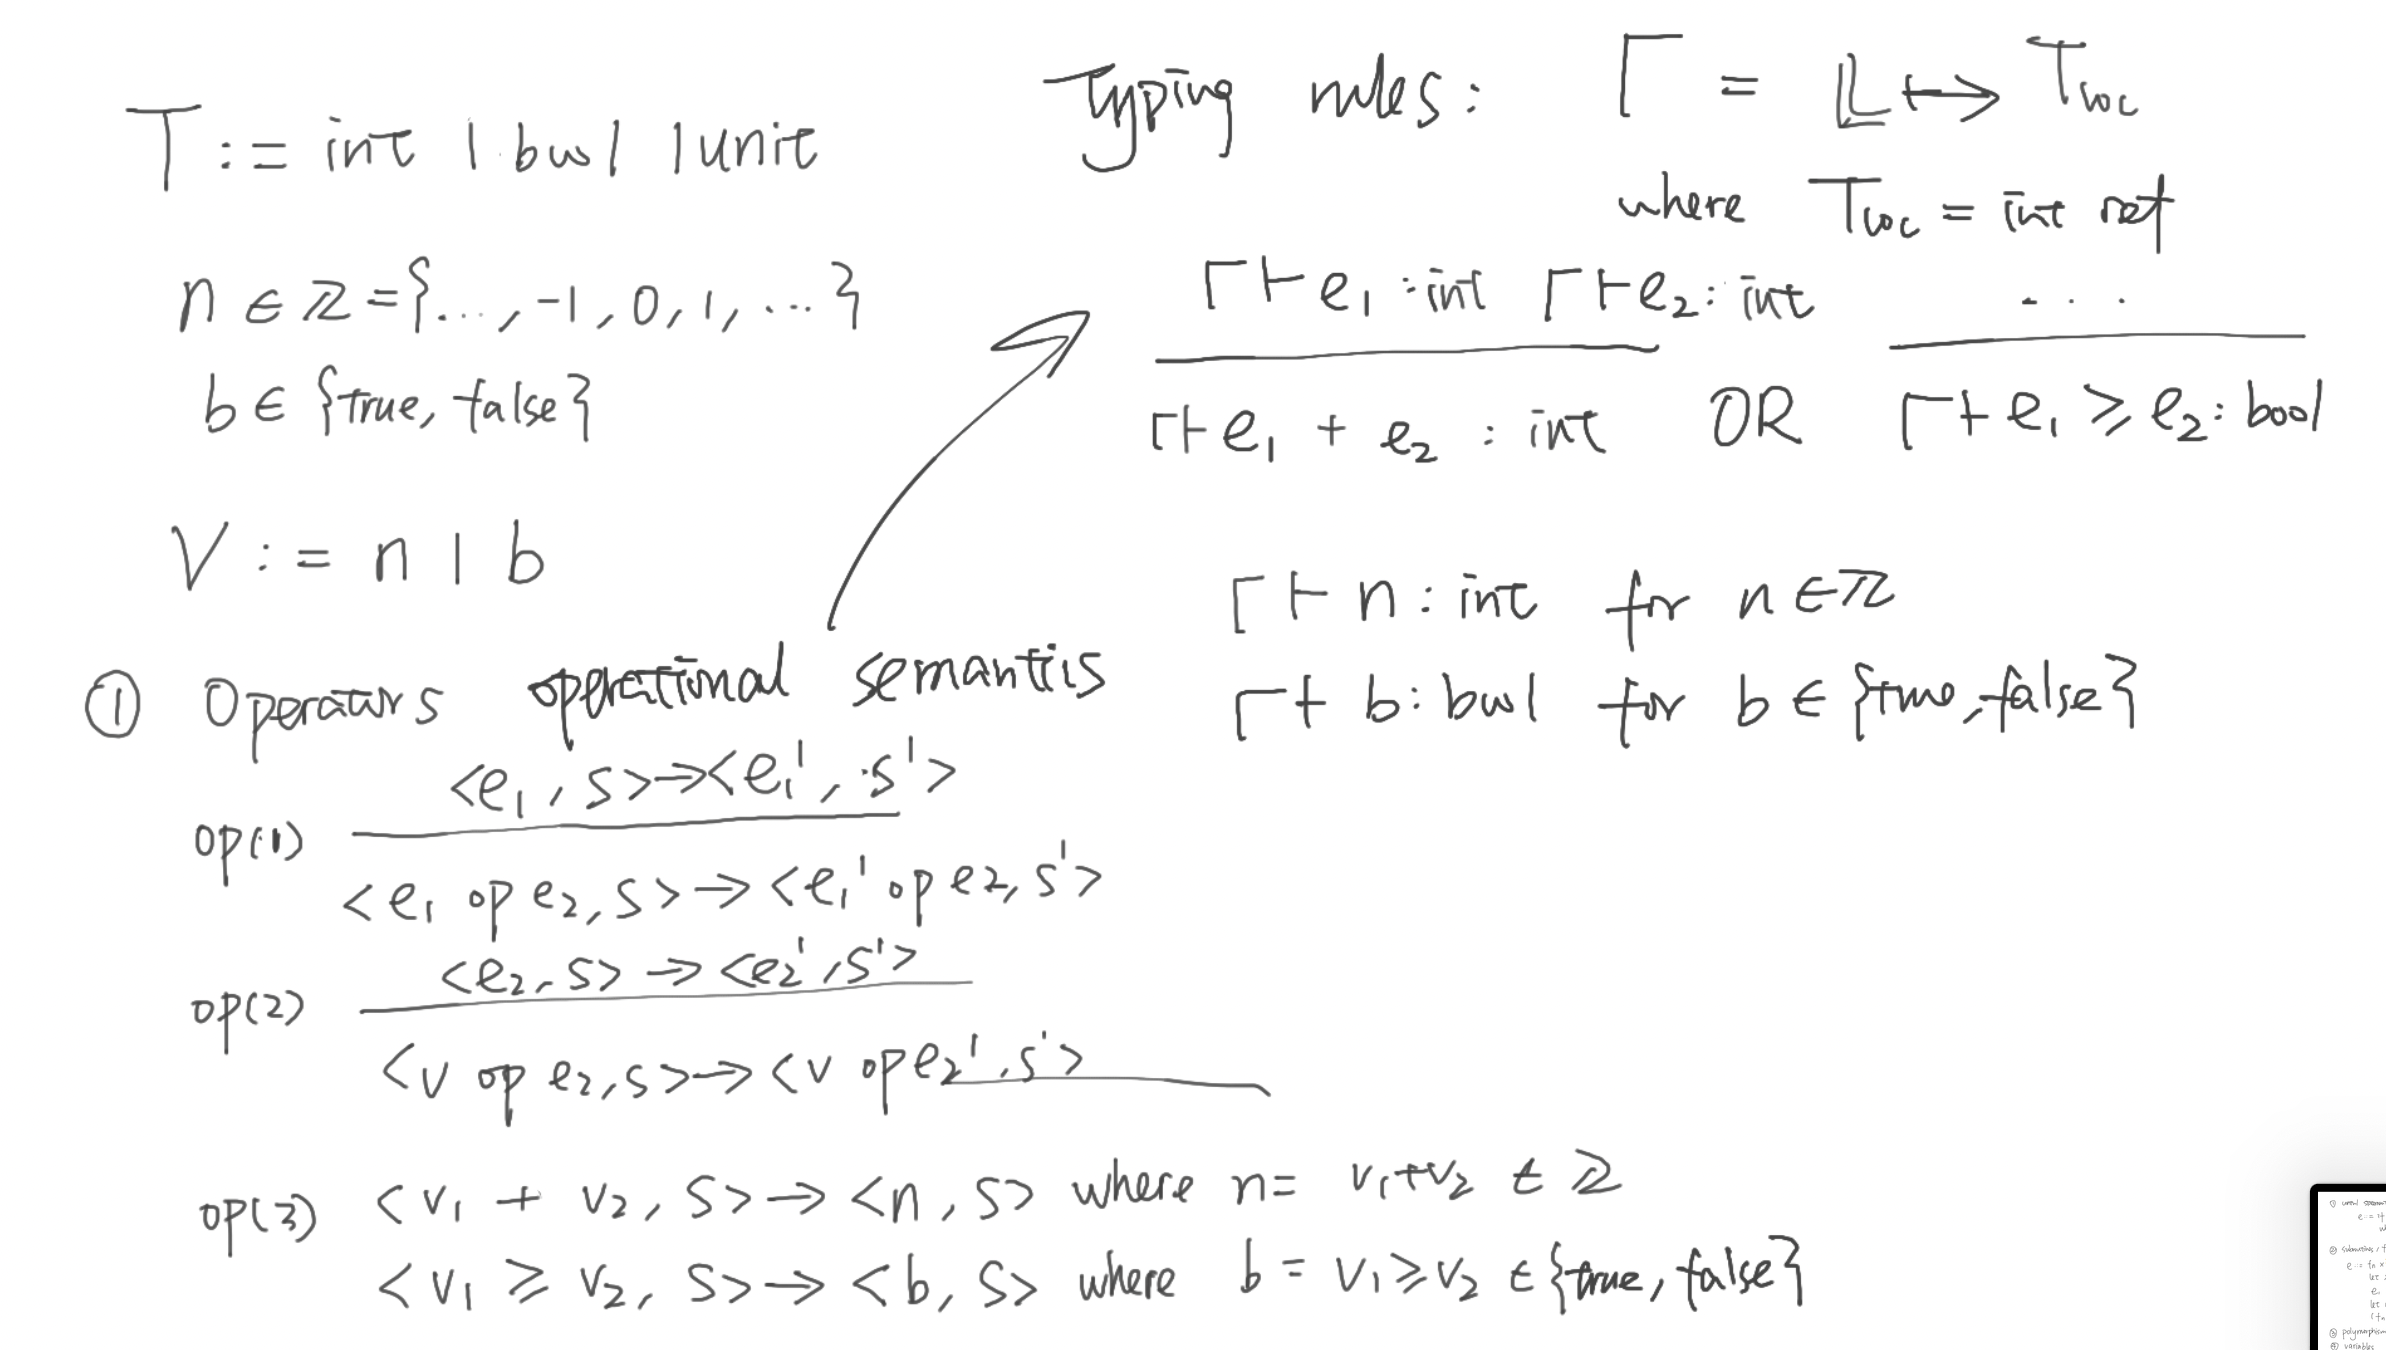 T ::= int | bool | unit
n ∈ ℤ = {..., -1, 0, 1, ...}
b ∈ {true, false}
V ::= n | b
① Operators operational semantis
op(1)
<e1, s> → <e1', s'>
<e1 op e2, s> → <e1' op e2, s'>
op(2)
<e2, s> → <e2', s'>
<v op e2, s> → <v op e2', s'>
op(3) <v1 + v2, s> → <n, s> where n = v1+v2 ∈ ℤ
<v1 ≥ v2, s> → <b, s> where b = v1 ≥ v2 ∈ {true, false}
Typing rules: Γ = 𝕃 ↦ Tloc
where Tloc = int ref
Γ ⊢ e1 : int Γ ⊢ e2 : int
Γ ⊢ e1 + e2 : int
OR
...
Γ ⊢ e1 ≥ e2 : bool
Γ ⊢ n : int for n ∈ ℤ
Γ ⊢ b : bool for b ∈ {true, false}
② subroutines
let
e
let
③ polymorphism
④ variables